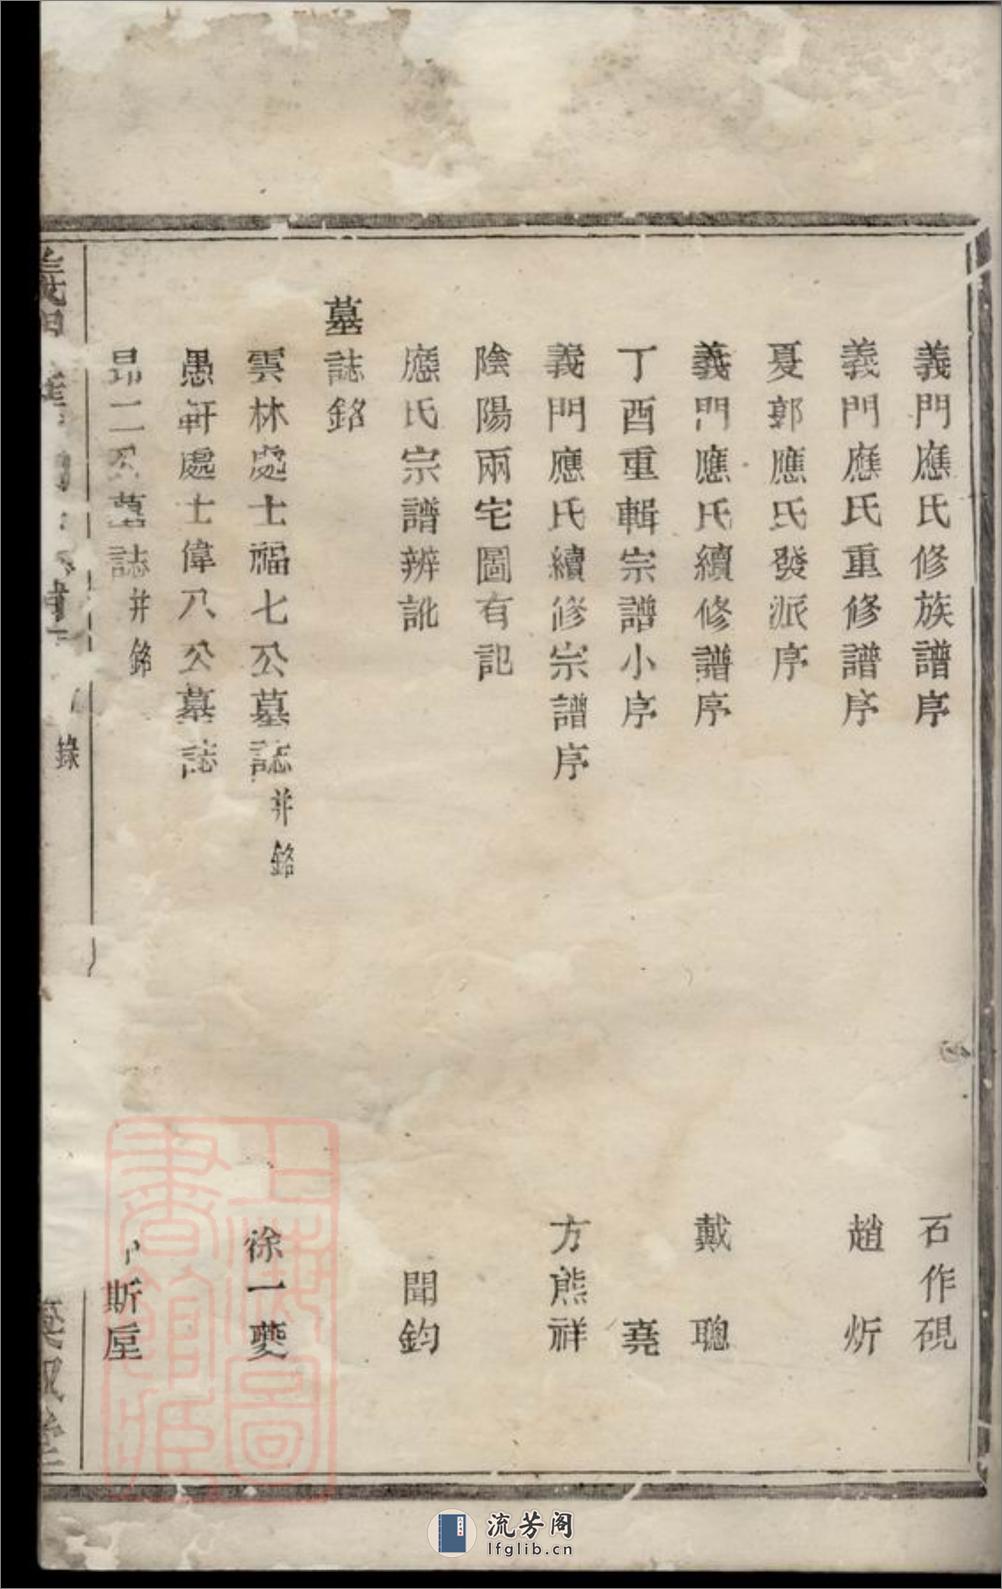 義門應氏修族譜序 石作硯
義門應氏重修譜序 趙炘
夏郭應氏發派序
義門應氏續修譜序 戴聰
丁酉重輯宗譜小序 堯
義門應氏續修宗譜序 方熊祥
陰陽兩宅圖有記
應氏宗譜辨訛 聞鈞
墓誌銘
雲林處士福七公墓誌并銘 徐一夔
愚軒處士偉八公墓誌
昂二公墓誌并銘 斯垕
義門
錄
上海圖書館藏
流芳阁
lfglib.cn